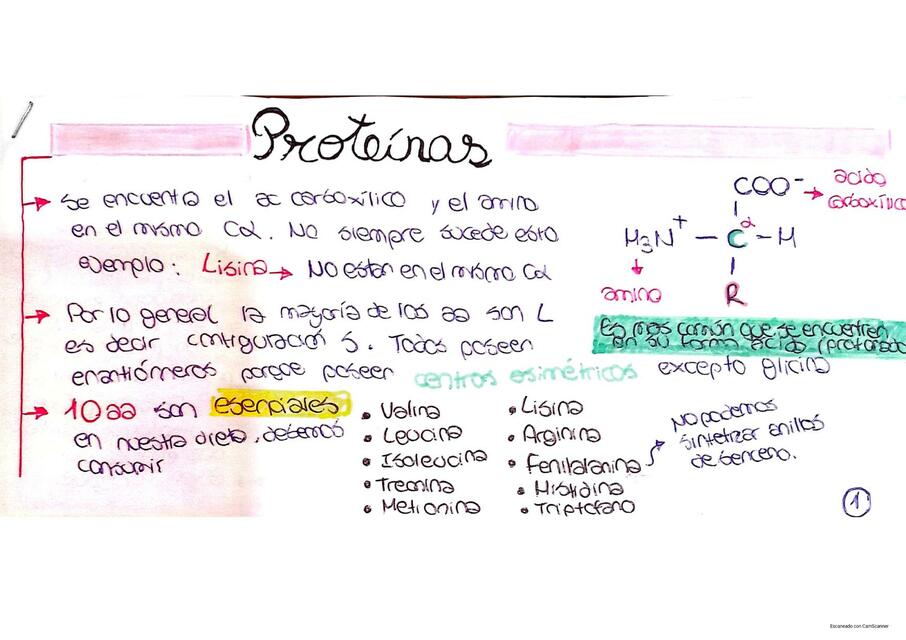 Proteínas
Se encuentra el ac carboxílico y el amino
en el mismo Cα. No siempre sucede esto
ejemplo: Lisina → No estan en el mismo Cα
Por lo general la mayoría de los aa son L
es decir configuración S. Todos poseen
enantiómeros porque poseen centros asimétricos excepto glicina
10 aa son esenciales
en nuestra dieta, debemos
consumir
• Valina
• Leucina
• Isoleucina
• Treonina
• Metionina
• Lisina
• Arginina
• Fenilalanina
• Histidina
• Triptofano
No podemos
sintetizar anillos
de benceno.
COO⁻ → acido
carboxílico
α
H₃N⁺ — C — H
amino
R
Es mas común que se encuentren
en su forma acido (protonado
1
Escaneado con CamScanner